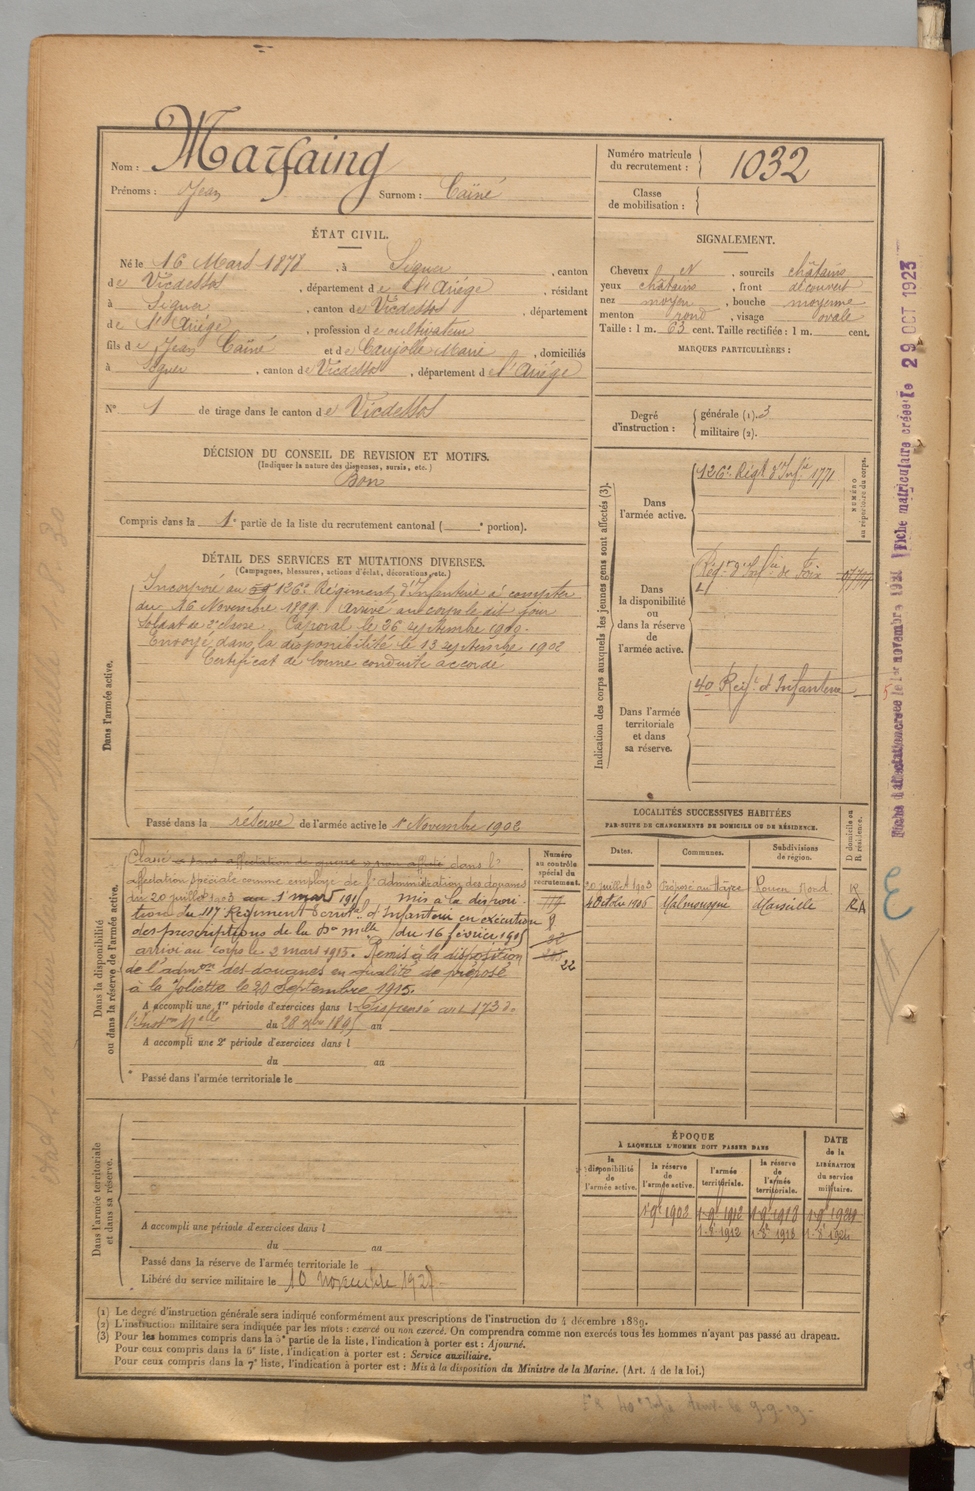 Nom : Marfaing
Prénoms : Jean Surnom : Caïné
Numéro matricule du recrutement : 1032
Classe de mobilisation :
ÉTAT CIVIL.
Né le 16 Mars 1878, à Siguer, canton
de Vicdessos, département de l'Ariége, résidant
à Siguer, canton de Vicdessos, département
de l'Ariége, profession de cultivateur
fils de Jean Caïné et de Caujolle Marie, domiciliés
à Siguer, canton de Vicdessos, département de l'Ariége
N° 1 de tirage dans le canton de Vicdessos
SIGNALEMENT.
Cheveux N, sourcils châtains
yeux châtains, front découvert
nez moyen, bouche moyenne
menton rond, visage ovale
Taille : 1 m. 63 cent. Taille rectifiée : 1 m. cent.
MARQUES PARTICULIÈRES :
Degré d'instruction : générale (1). 3
militaire (2).
DÉCISION DU CONSEIL DE REVISION ET MOTIFS.
(Indiquer la nature des dispenses, sursis, etc.)
Bon
Compris dans la 1e partie de la liste du recrutement cantonal ( e portion).
DÉTAIL DES SERVICES ET MUTATIONS DIVERSES.
(Campagnes, blessures, actions d'éclat, décorations, etc.)
Dans l'armée active.
Incorporé au 126e Régiment d'Infanterie à compter
du 16 Novembre 1899. Arrivé au corps le dit jour
Soldat de 2e classe. Caporal le 26 septembre
Envoyé dans la disponibilité le 13 septembre 1902
Certificat de bonne conduite accordé
Passé dans la réserve de l'armée active le 1er Novembre 1902
Indication des corps auxquels les jeunes gens sont affectés (3).
NUMÉRO au répertoire du corps.
Dans l'armée active.
126e Régt d'Infie 1771
Dans la disponibilité ou dans la réserve de l'armée active.
Régt d'Infie de Foix
Dans l'armée territoriale et dans sa réserve.
40 Regt d'Infanterie
Dans la disponibilité ou dans la réserve de l'armée active.
Classé dans l'
affectation spéciale comme employé de l'administration des douanes
du 20 juillet 1903 au 1er mars 1915 mis à la disposi-
tion du 117e Régiment territal d'Infanterie en exécution
des prescriptions de la Don Mlle du 16 février 1915
arrivé au corps le 2 mars 1915. Remis à la disposition
de l'admon des douanes en qualité de préposé
à la Joliette le 20 septembre 1915.
A accompli une 1re période d'exercices dans l Dispensé art. 173 de
l'Inston Mlle du 28 Xbre 1895 au
A accompli une 2e période d'exercices dans l
du au
Passé dans l'armée territoriale le
Numéro au contrôle spécial du recrutement.
22
LOCALITÉS SUCCESSIVES HABITÉES
PAR SUITE DE CHANGEMENTS DE DOMICILE OU DE RÉSIDENCE.
Dates. Communes. Subdivisions de région. D domicile ou R résidence.
20 juillet 1903 Préposé au Havre Rouen Nord R
4 Octobre 1906 Malmousque Marseille RA
Dans l'armée territoriale et dans sa réserve.
A accompli une période d'exercices dans l
du au
Passé dans la réserve de l'armée territoriale le
Libéré du service militaire le 10 novembre
ÉPOQUE
À LAQUELLE L'HOMME DOIT PASSER DANS
la disponibilité de l'armée active. la réserve de l'armée active. l'armée territoriale. la réserve de l'armée territoriale. DATE de la LIBÉRATION du service militaire.
1 9e 1902 1 9e 1912 1 9e 1918
1. 8e 1912 1. 8e 1918
Fiche matriculaire créée le 29 OCT 1923
(1) Le degré d'instruction générale sera indiqué conformément aux prescriptions de l'instruction du 4 décembre 1889.
(2) L'instruction militaire sera indiquée par les mots : exercé ou non exercé. On comprendra comme non exercés tous les hommes n'ayant pas passé au drapeau.
(3) Pour les hommes compris dans la 5e partie de la liste, l'indication à porter est : Ajourné.
Pour ceux compris dans la 6e liste, l'indication à porter est : Service auxiliaire.
Pour ceux compris dans la 7e liste, l'indication à porter est : Mis à la disposition du Ministre de la Marine. (Art. 4 de la loi.)